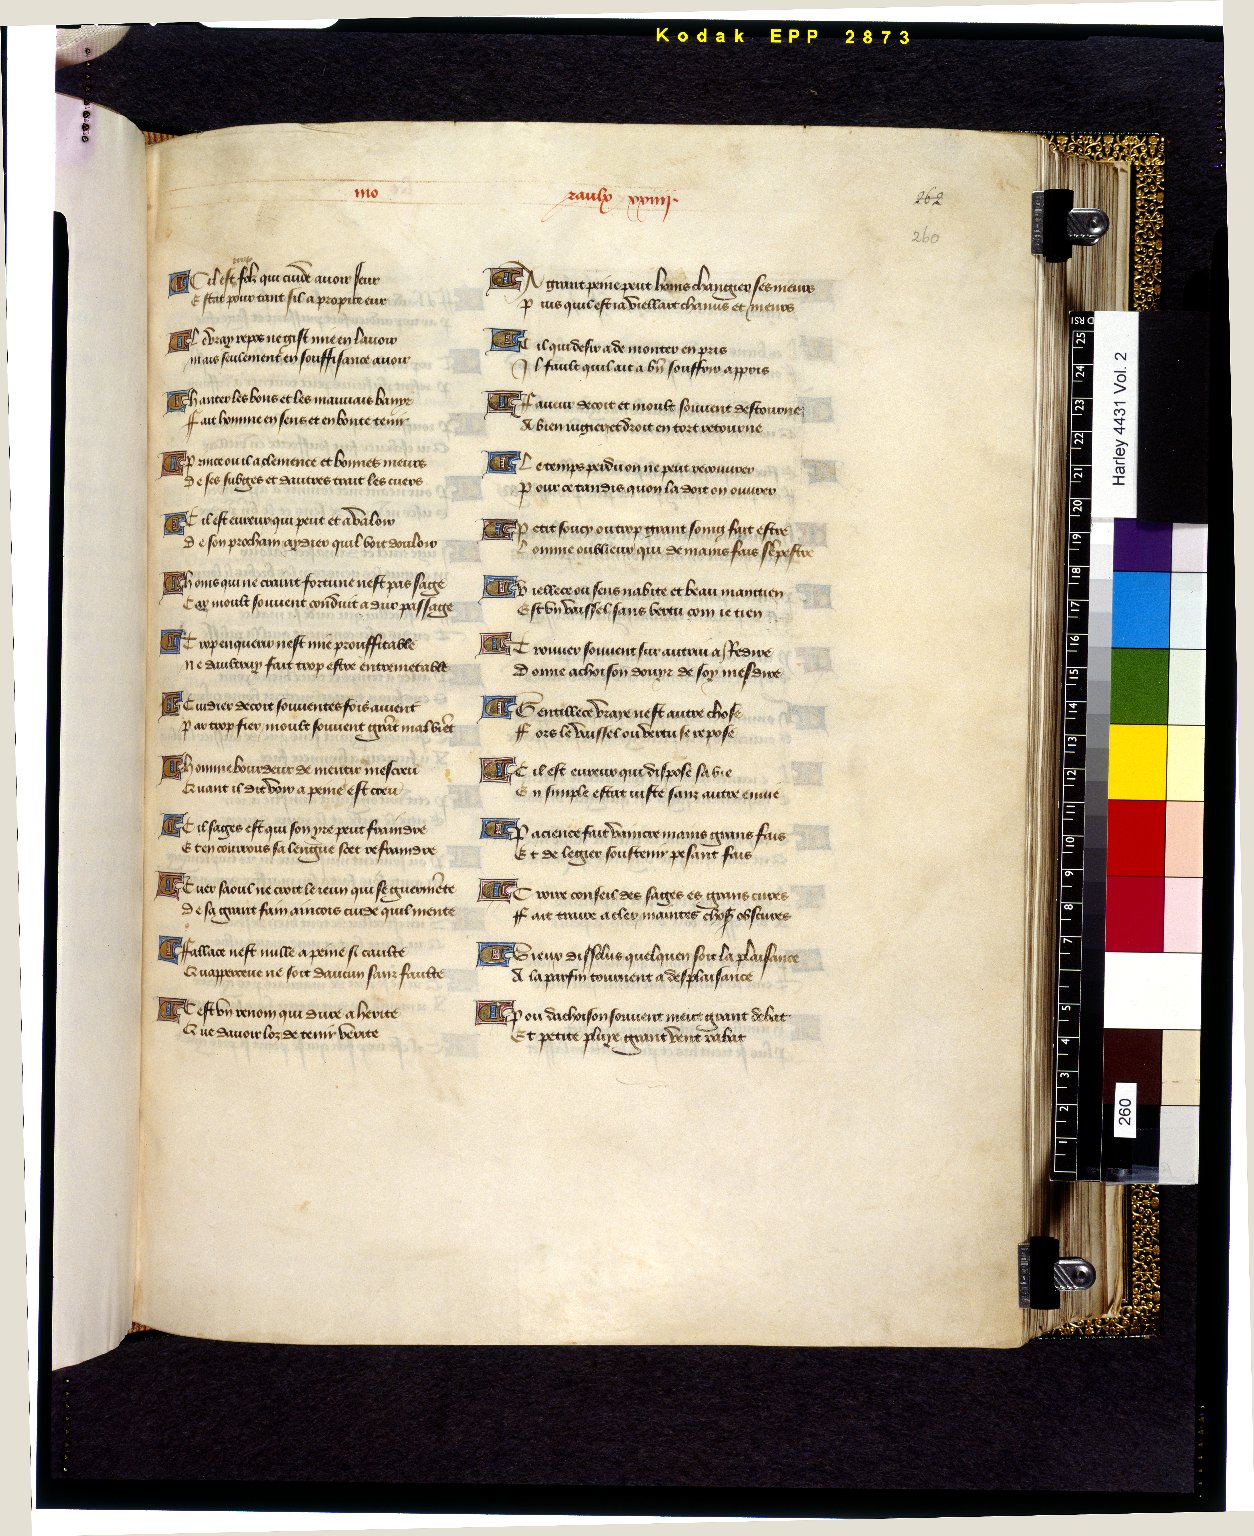 Kodak EPP 2873
mo
raulx xxiiii.
262
260
Cil est folz qui cuide avoir seur
Estat pour tant sil a propice eur
Le vray repos ne gist mie en lavoir
Mais seulement en souffisance avoir
Hanter les bons et les mauvais banir
Fait homme en sens et en bonte tenir
Prince ou il a clemence et bonnes meurs
De ses subges et dautres trait les cuers
Cil est eureux qui peut et a valoir
De son prochain aydier quil voit douloir
Homs qui ne craint fortune nest pas sage
Car moult souvent conduit a dur passage
Trop enquerir nest mie prouffitable
Ne daultruy fait trop estre entremetable
Cuidier decoit souventes fois avient
Par trop fier moult souvent grant mal vient
Homme bourdeur de mentir mescreu
Quant il dit voir a peine est creu
Cil sages est qui son yre peut fraindre
Et en courrous sa lengue scet refraindre
Cuer saoul ne croit le jeun qui se guermente
De sa grant fain aincois cuide quil mente
Fallace nest nulle a peine si caulte
Quapperceue ne soit daucun sanz faulte
Cest un renom qui duce a herite
Que davoir loz de tenir verite
A grant peine peut homs changier ses meurs
Puis quil est ja viellart chanus et meurs
Cil qui desir a de monter en pris
Il fault quil ait a bien souffrir appris
Faveur decoit et moult souvent destourne
A bien jugier et droit en tort retourne
Le temps perdu on ne peut recouvrer
Pour ce tandis quon la doit on ouvrer
Petit soucy ou trop grant soing fait estre
Lomme oublieux qui de mains fais sempestre
Viellece ou sens nabite et beau maintien
Est un vaissel sans vertu com je tien
Trouver souvent sur autrui a redire
Donne achoison douyr de soy mesdire
Gentillece vraye nest autre chose
Fors le vaissel ou vertu se repose
Cil est eureux qui dispose sa vie
En simple estat juste sanz autre envie
Pacience fait vaincre mains grans fais
Et de legier soustenir pesant fais
Croire conseil des sages es grans cures
Fait traire a cler maintes choses obscures
Gieux dissolus quelquen soit la plaisance
A la parfin tournent a desplaisance
Pou dachoison souvent meut grant debat
Et petite pluye grant vent rabat
Harley 4431 Vol. 2
260